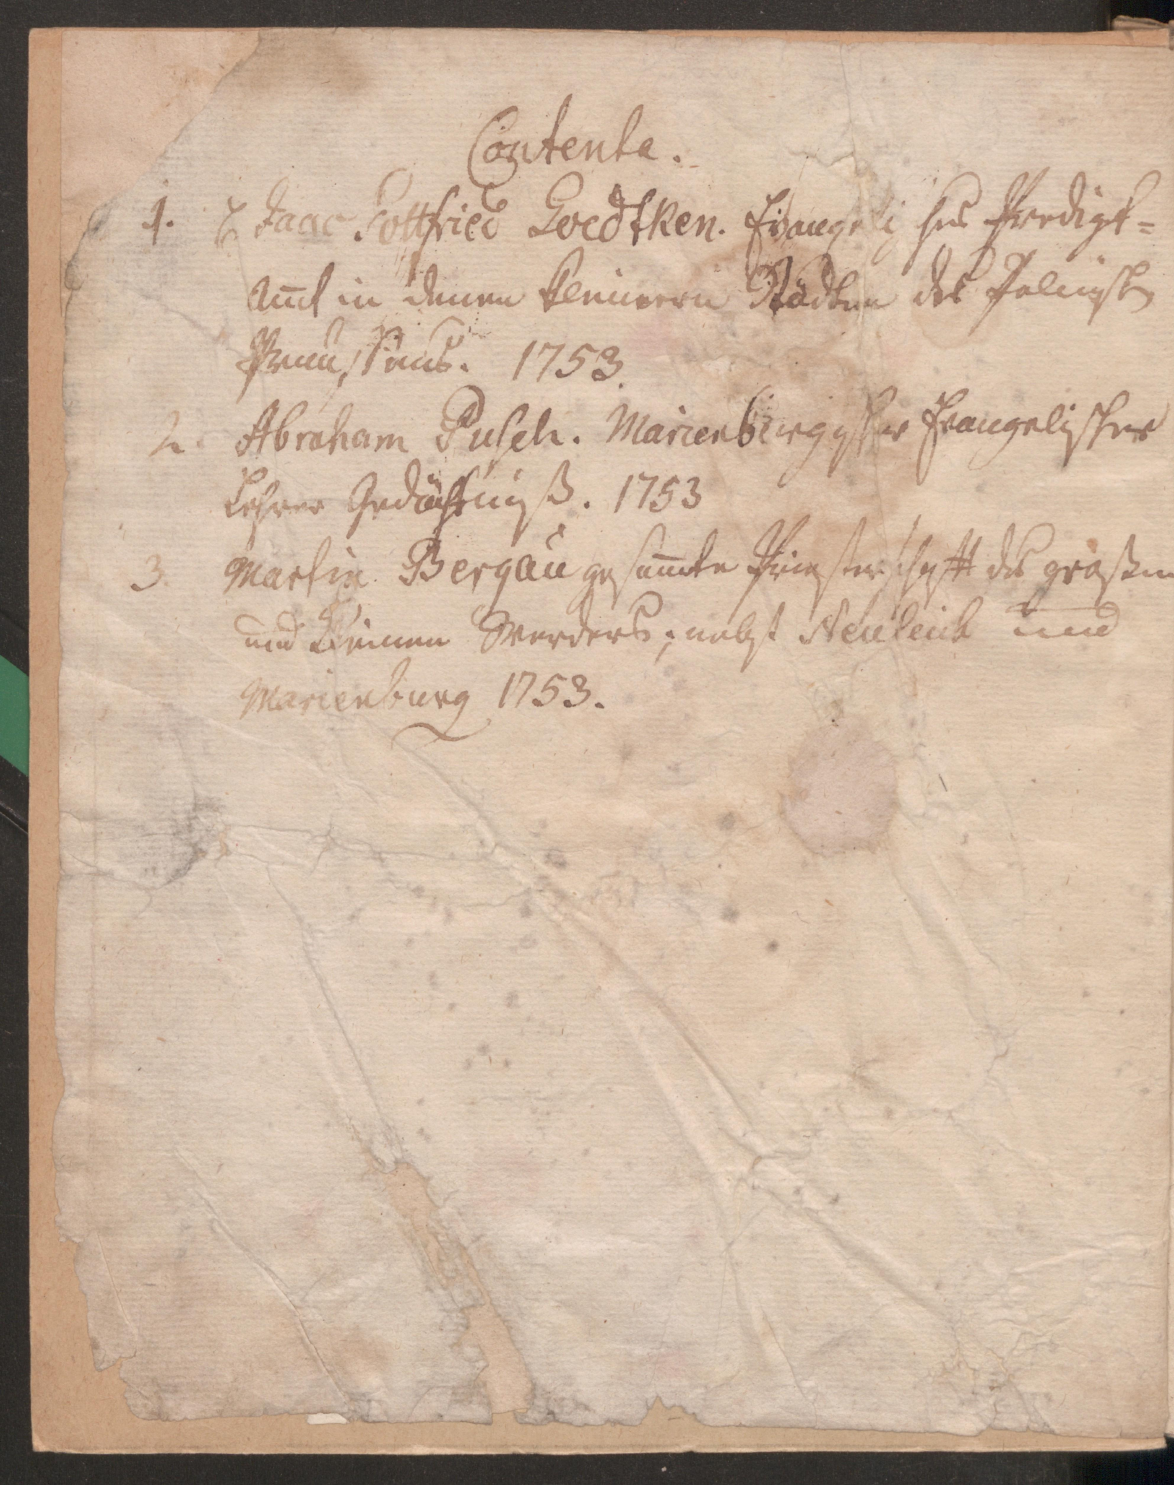 Contenta.
1. Isaac Gottfried Goedtken. Evangelisches Predigt=
Amt in denen kleinern Städten des Polnischen
Preussens. 1753.
2. Abraham Pusch. Marienburgischer Evangelischer
Lehrer Gedächtniß. 1753
3. Martin Bergau gesamte Priesterschafft des großen
und kleinen Werders, nebst Neuteich und
Marienburg 1753.